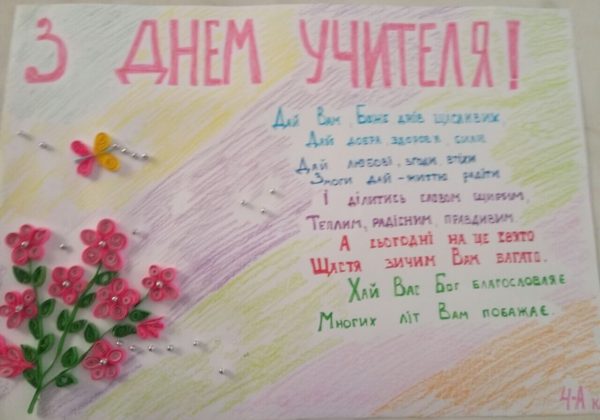 З ДНЕМ УЧИТЕЛЯ!
Дай Вам Боже днів щасливих,
Дай добра, здоров'я, сили
Дай любові, згоди, втіхи
Змоги дай - життю радіти
І ділитись словом щирим,
Теплим, радісним, правдивим.
А сьогодні на це свято
Щастя зичим Вам багато.
Хай Вас Бог благословляє
Многих літ Вам побажає.
4-А к